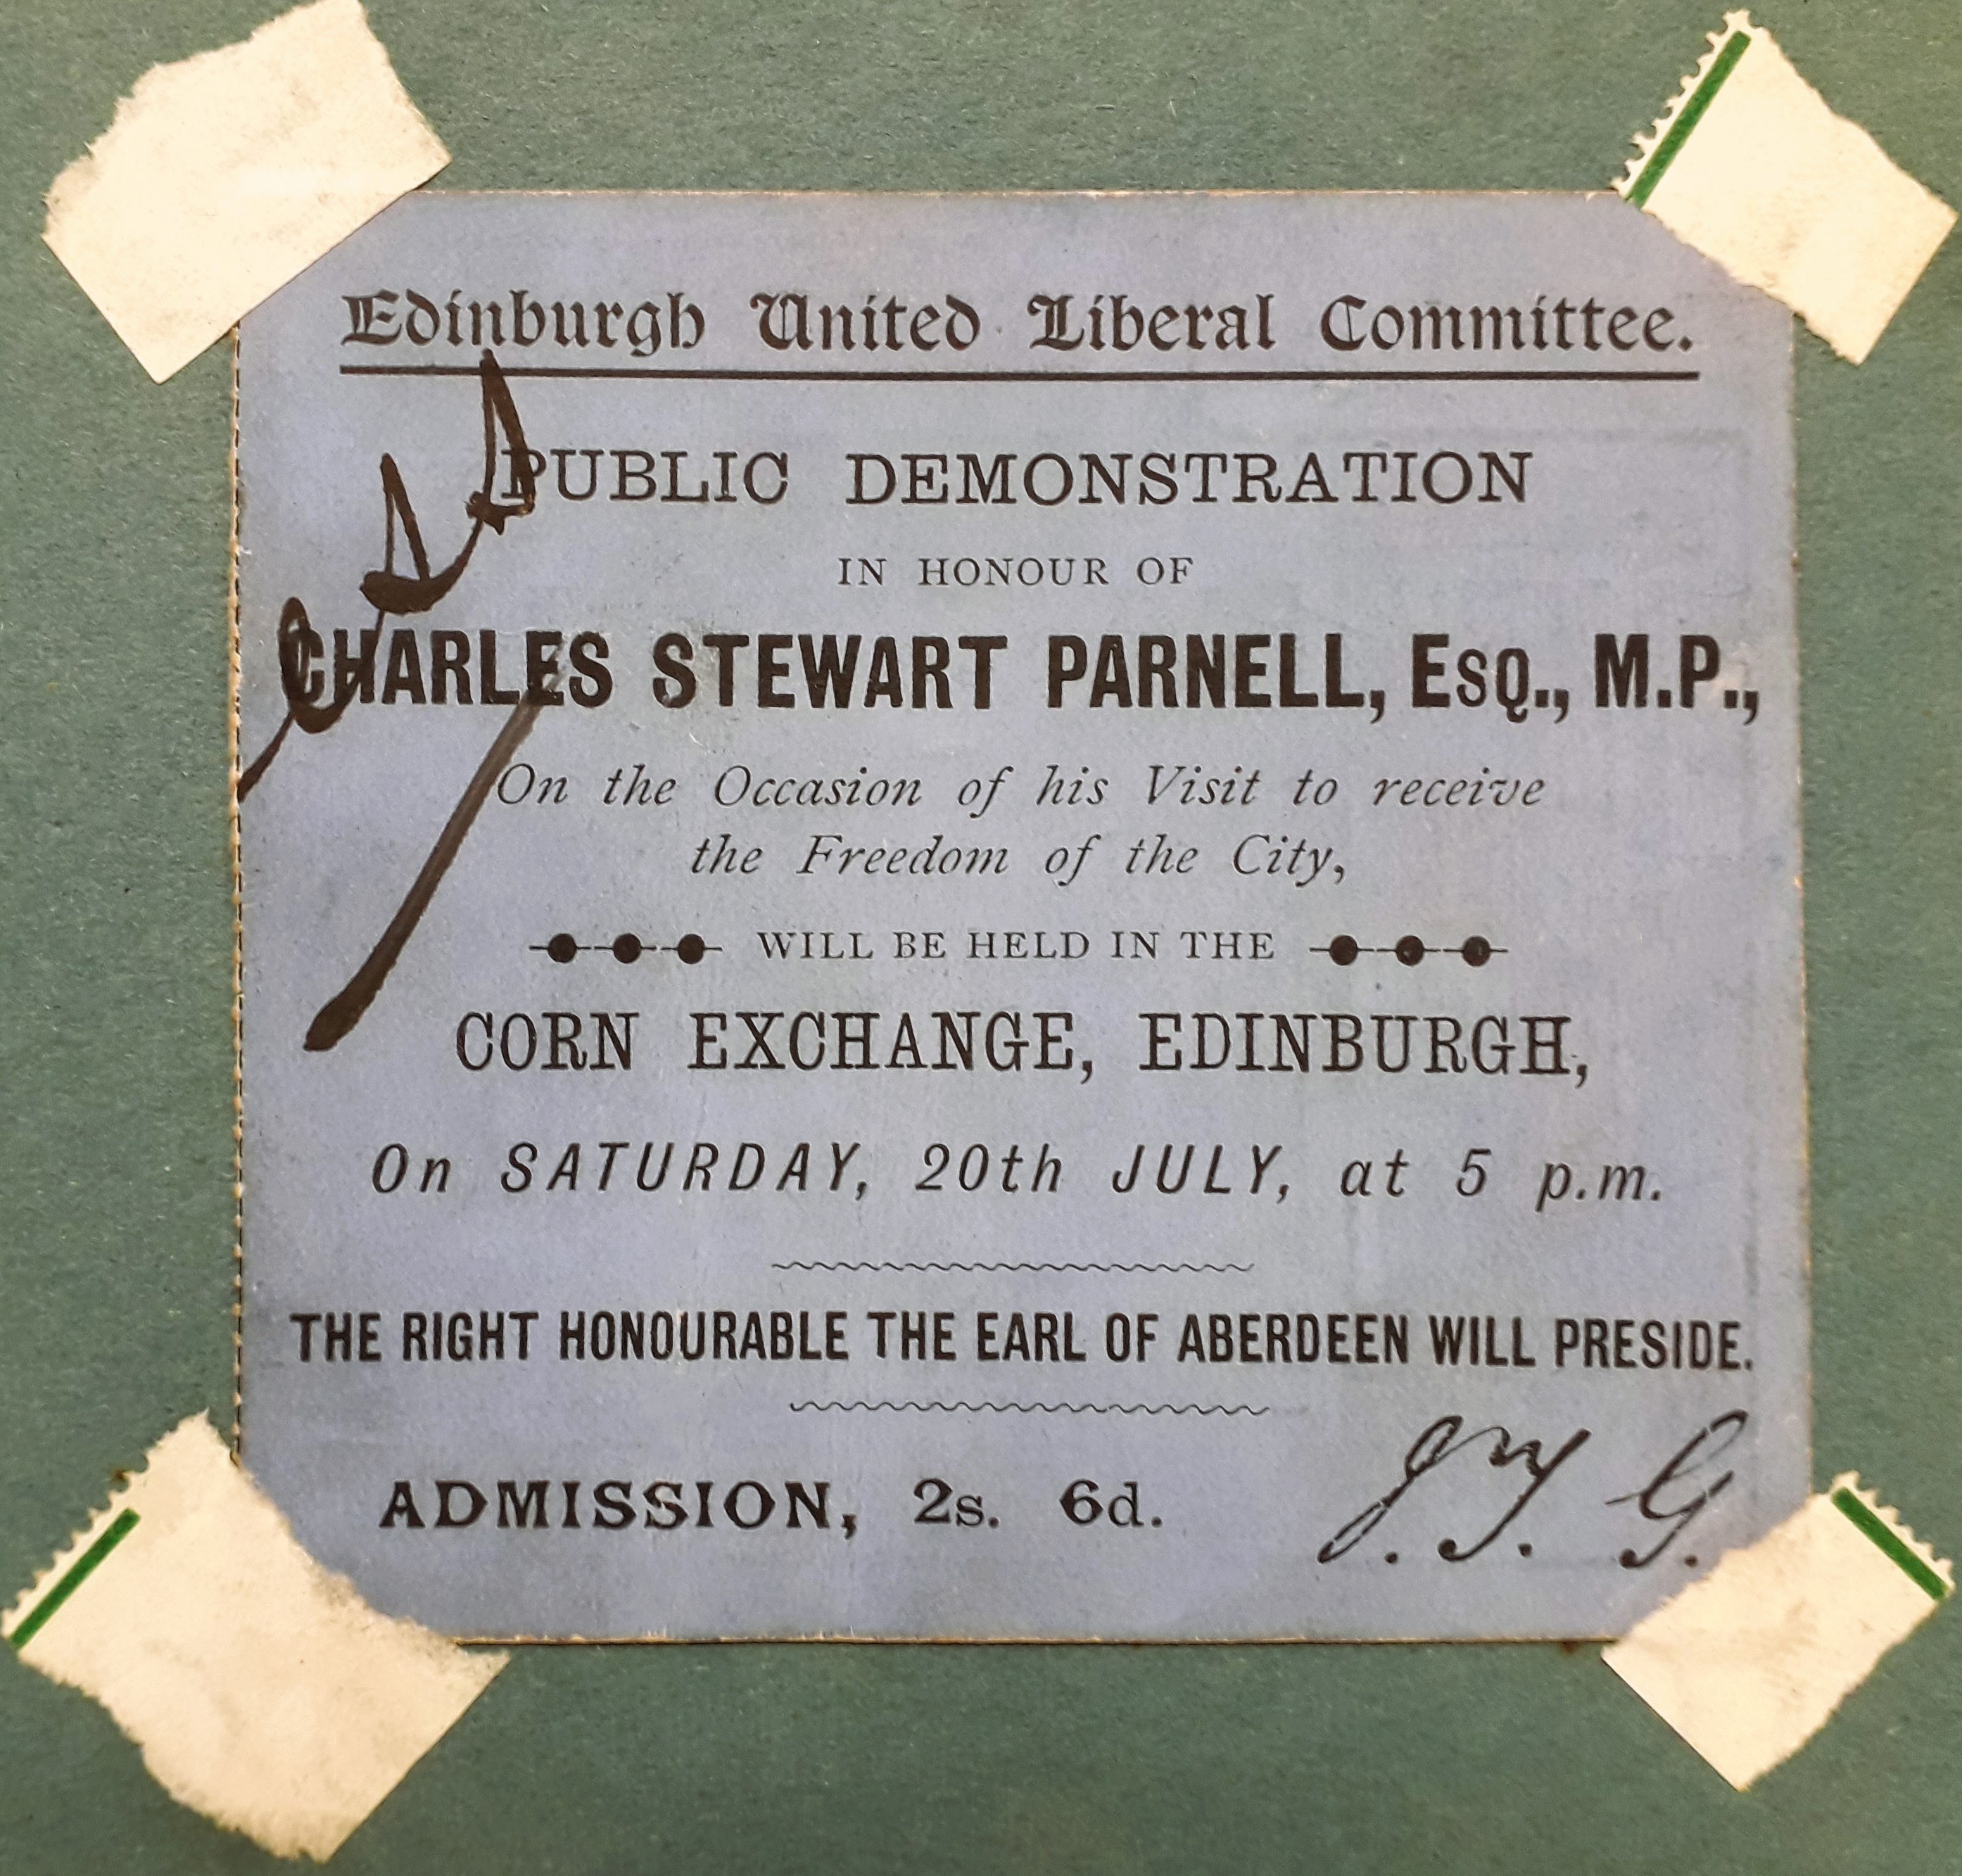 Edinburgh United Liberal Committee.
PUBLIC DEMONSTRATION
IN HONOUR OF
CHARLES STEWART PARNELL, ESQ., M.P.,
On the Occasion of his Visit to receive
the Freedom of the City,
WILL BE HELD IN THE
CORN EXCHANGE, EDINBURGH,
On SATURDAY, 20th JULY, at 5 p.m.
THE RIGHT HONOURABLE THE EARL OF ABERDEEN WILL PRESIDE.
ADMISSION, 2s. 6d.